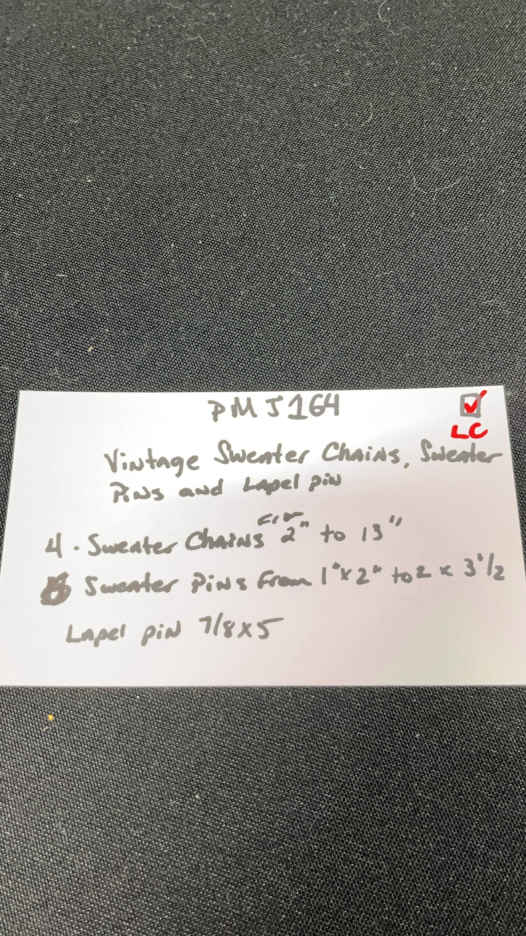 PMJ164
LC
Vintage Sweater Chains, Sweater
Pins and Lapel pin
4 - Sweater Chains 2" to 13"
Sweater Pins From 1"x2" to 2 x 3 1/2
Lapel pin 7/8x5